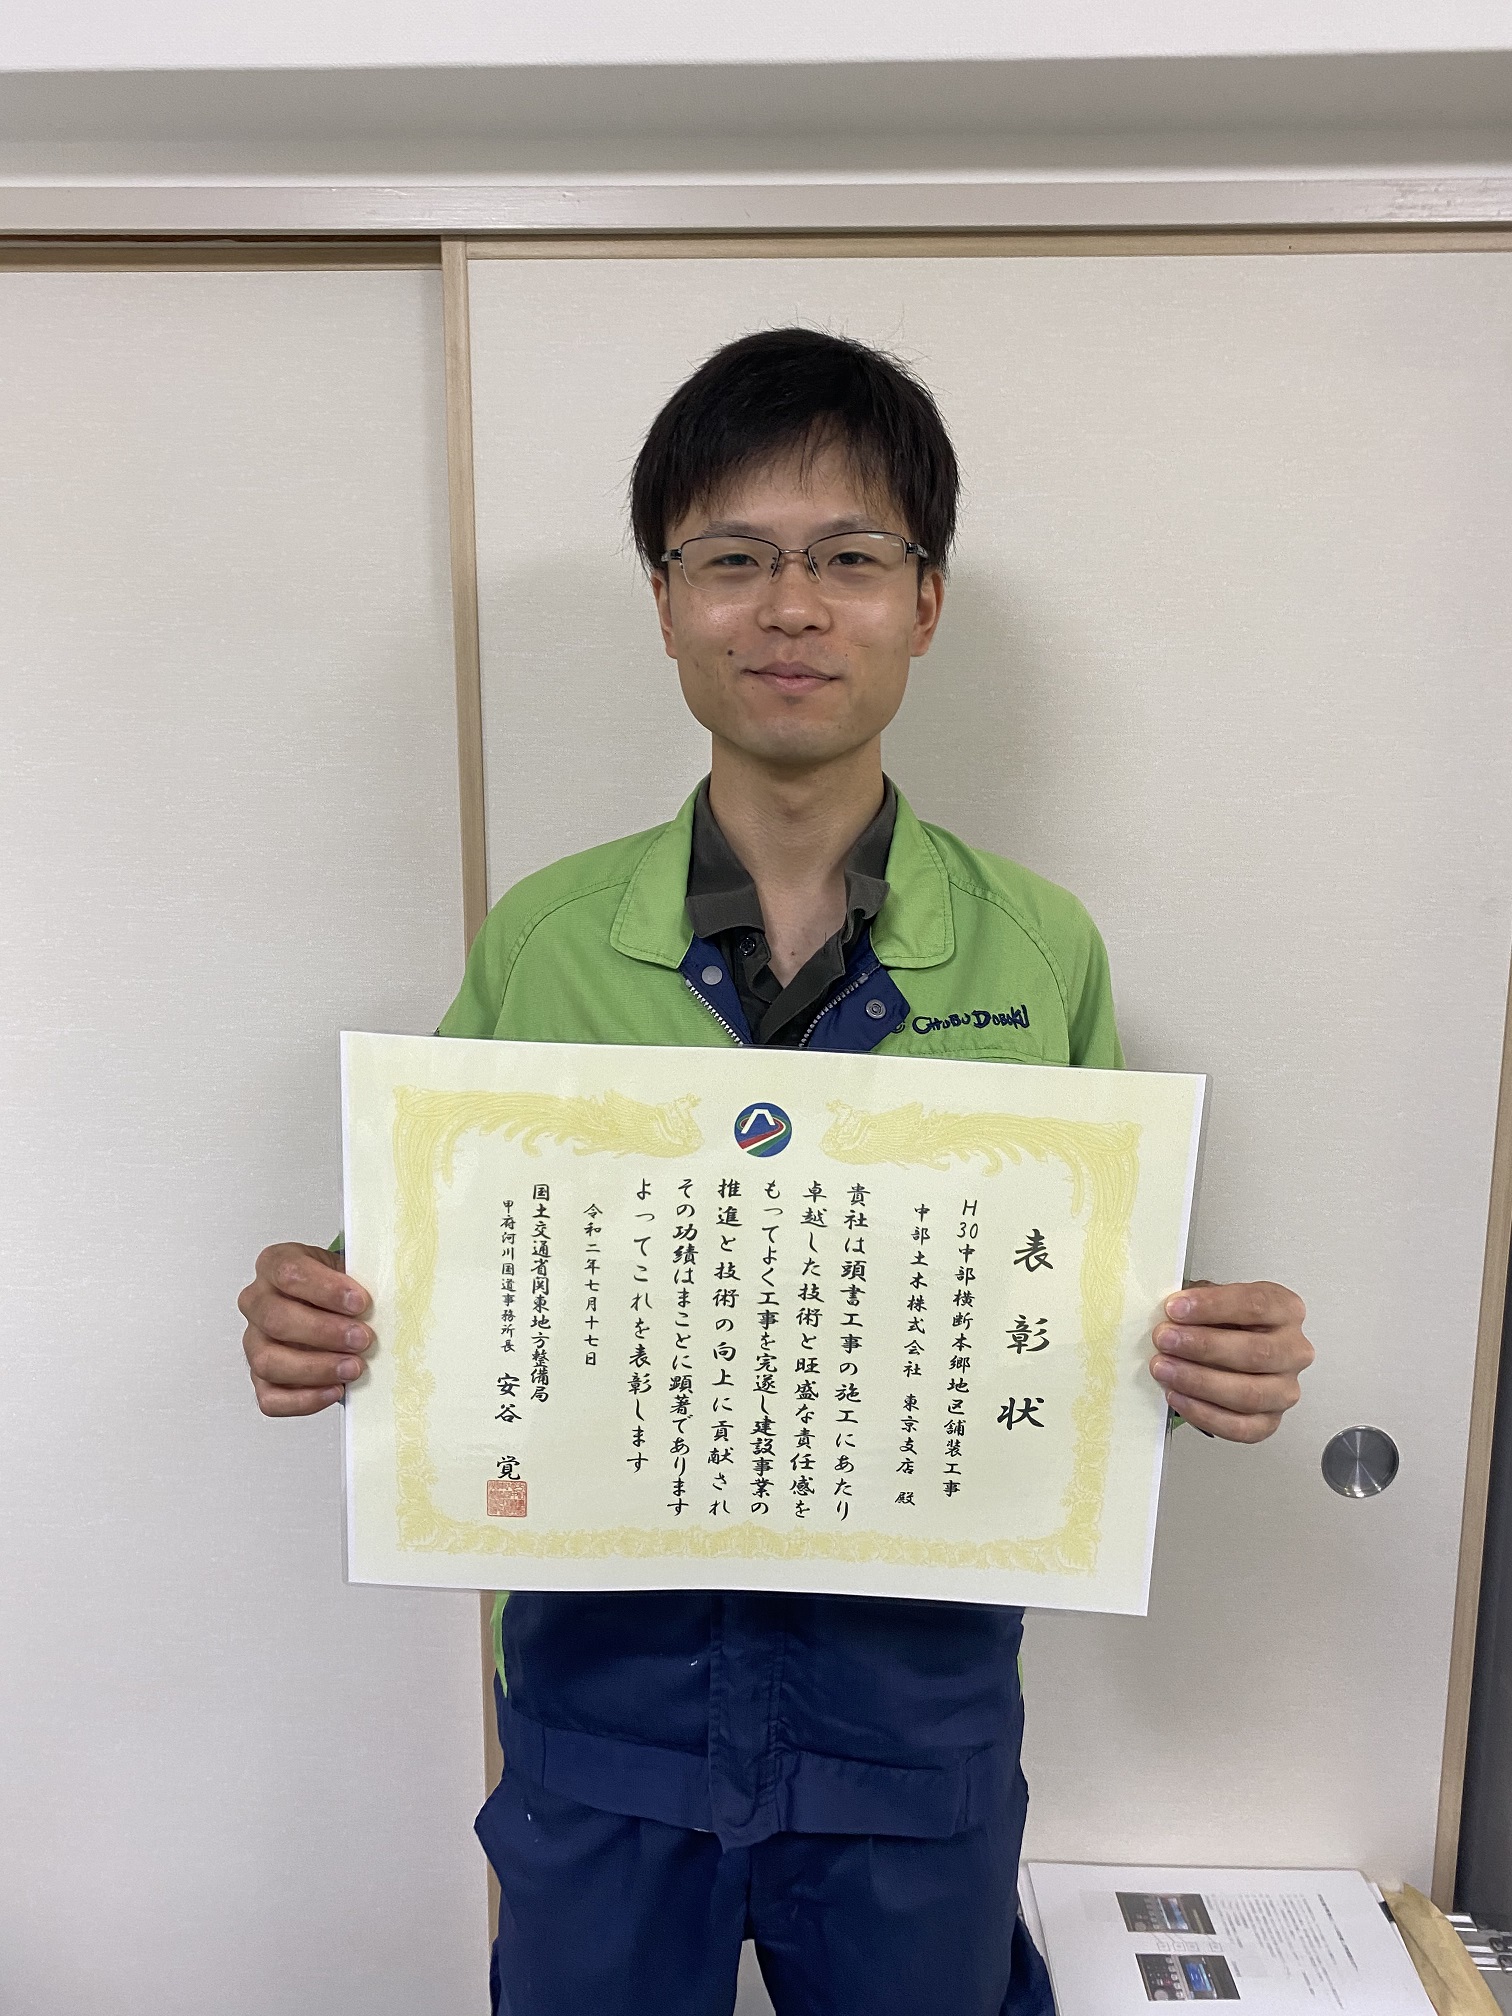 CHUBU DOBOKU
表彰状
H30中部横断本郷地区舗装工事
中部土木株式会社 東京支店 殿
貴社は頭書工事の施工にあたり
卓越した技術と旺盛な責任感を
もってよく工事を完遂し建設事業の
推進と技術の向上に貢献され
その功績はまことに顕著であります
よってこれを表彰します
令和二年七月十七日
国土交通省関東地方整備局
甲府河川国道事務所長 安谷 覚